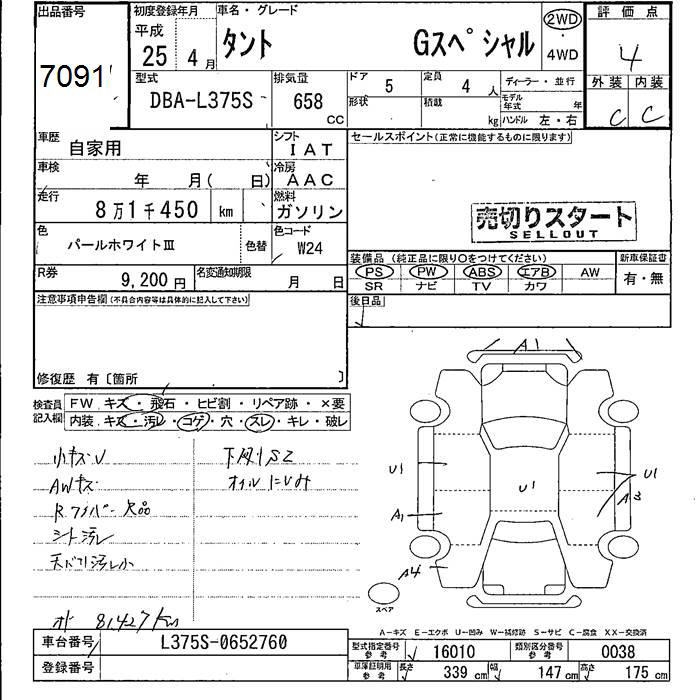 出品番号 初度登録年月 車名・グレード 評価点
7091
平成 25 4月 タント Gスペシャル 2WD 4WD 4
型式 排気量 ドア 5 定員 4人 ディーラー・並行 外装 内装
DBA-L375S 658 CC 形状 積載 kg モデル年式 年 ハンドル 左・右 C C
車歴 自家用 シフト IAT セールスポイント(正常に機能するものに限ります)
車検 年 月( 日) 冷房 AAC
走行 8万1千450 km 燃料 ガソリン
売切りスタート
SELLOUT
色 パールホワイトⅢ 色替 色コード W24
装備品(純正品に限り○をつけてください) 新車保証書
R券 9,200円 名変通知期限 月 日 PS PW ABS エアB AW 有・無
SR ナビ TV カワ
注意事項申告欄(不具合内容等は具体的に記入して下さい) 後日品
修復歴 有〔箇所 〕
検査員記入欄 FW キズ・飛石・ヒビ割・リペア跡・×要
内装 キズ・汚レ・コゲ・穴・スレ・キレ・破レ
小キズU 下廻りS2
AWキズ オイルにじみ
Rワイパー欠品
シート汚レ
天張り汚レ小
81427km
A1
U1 U1 U1
A1 A3
A4
スペア
A-キズ E-エクボ U-凹み W-補修跡 S-サビ C-腐食 XX-交換済
車台番号 L375S-0652760 型式指定番号 参考 16010 類別区分番号 参考 0038
登録番号 車庫証明用 参考 長さ 339cm 幅 147cm 高さ 175cm